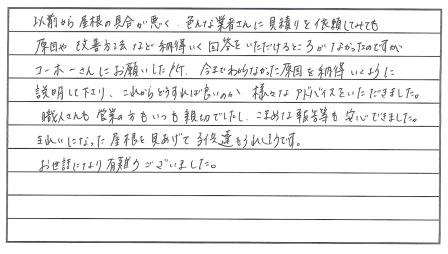 以前から屋根の具合が悪く、色んな業者さんに見積りを依頼してみても
原因や改善方法など納得いく回答をいただけるところがなかったのですが
コーホーさんにお願いした所、今までわからなかった原因を納得いくように
説明して下さり、これからどうすれば良いのか様々なアドバイスをいただきました。
職人さんも営業の方もいつも親切でしたし、こまめな報告等も安心できました。
きれいになった屋根を見あげて子供達もうれしそうです。
お世話になり有難うございました。